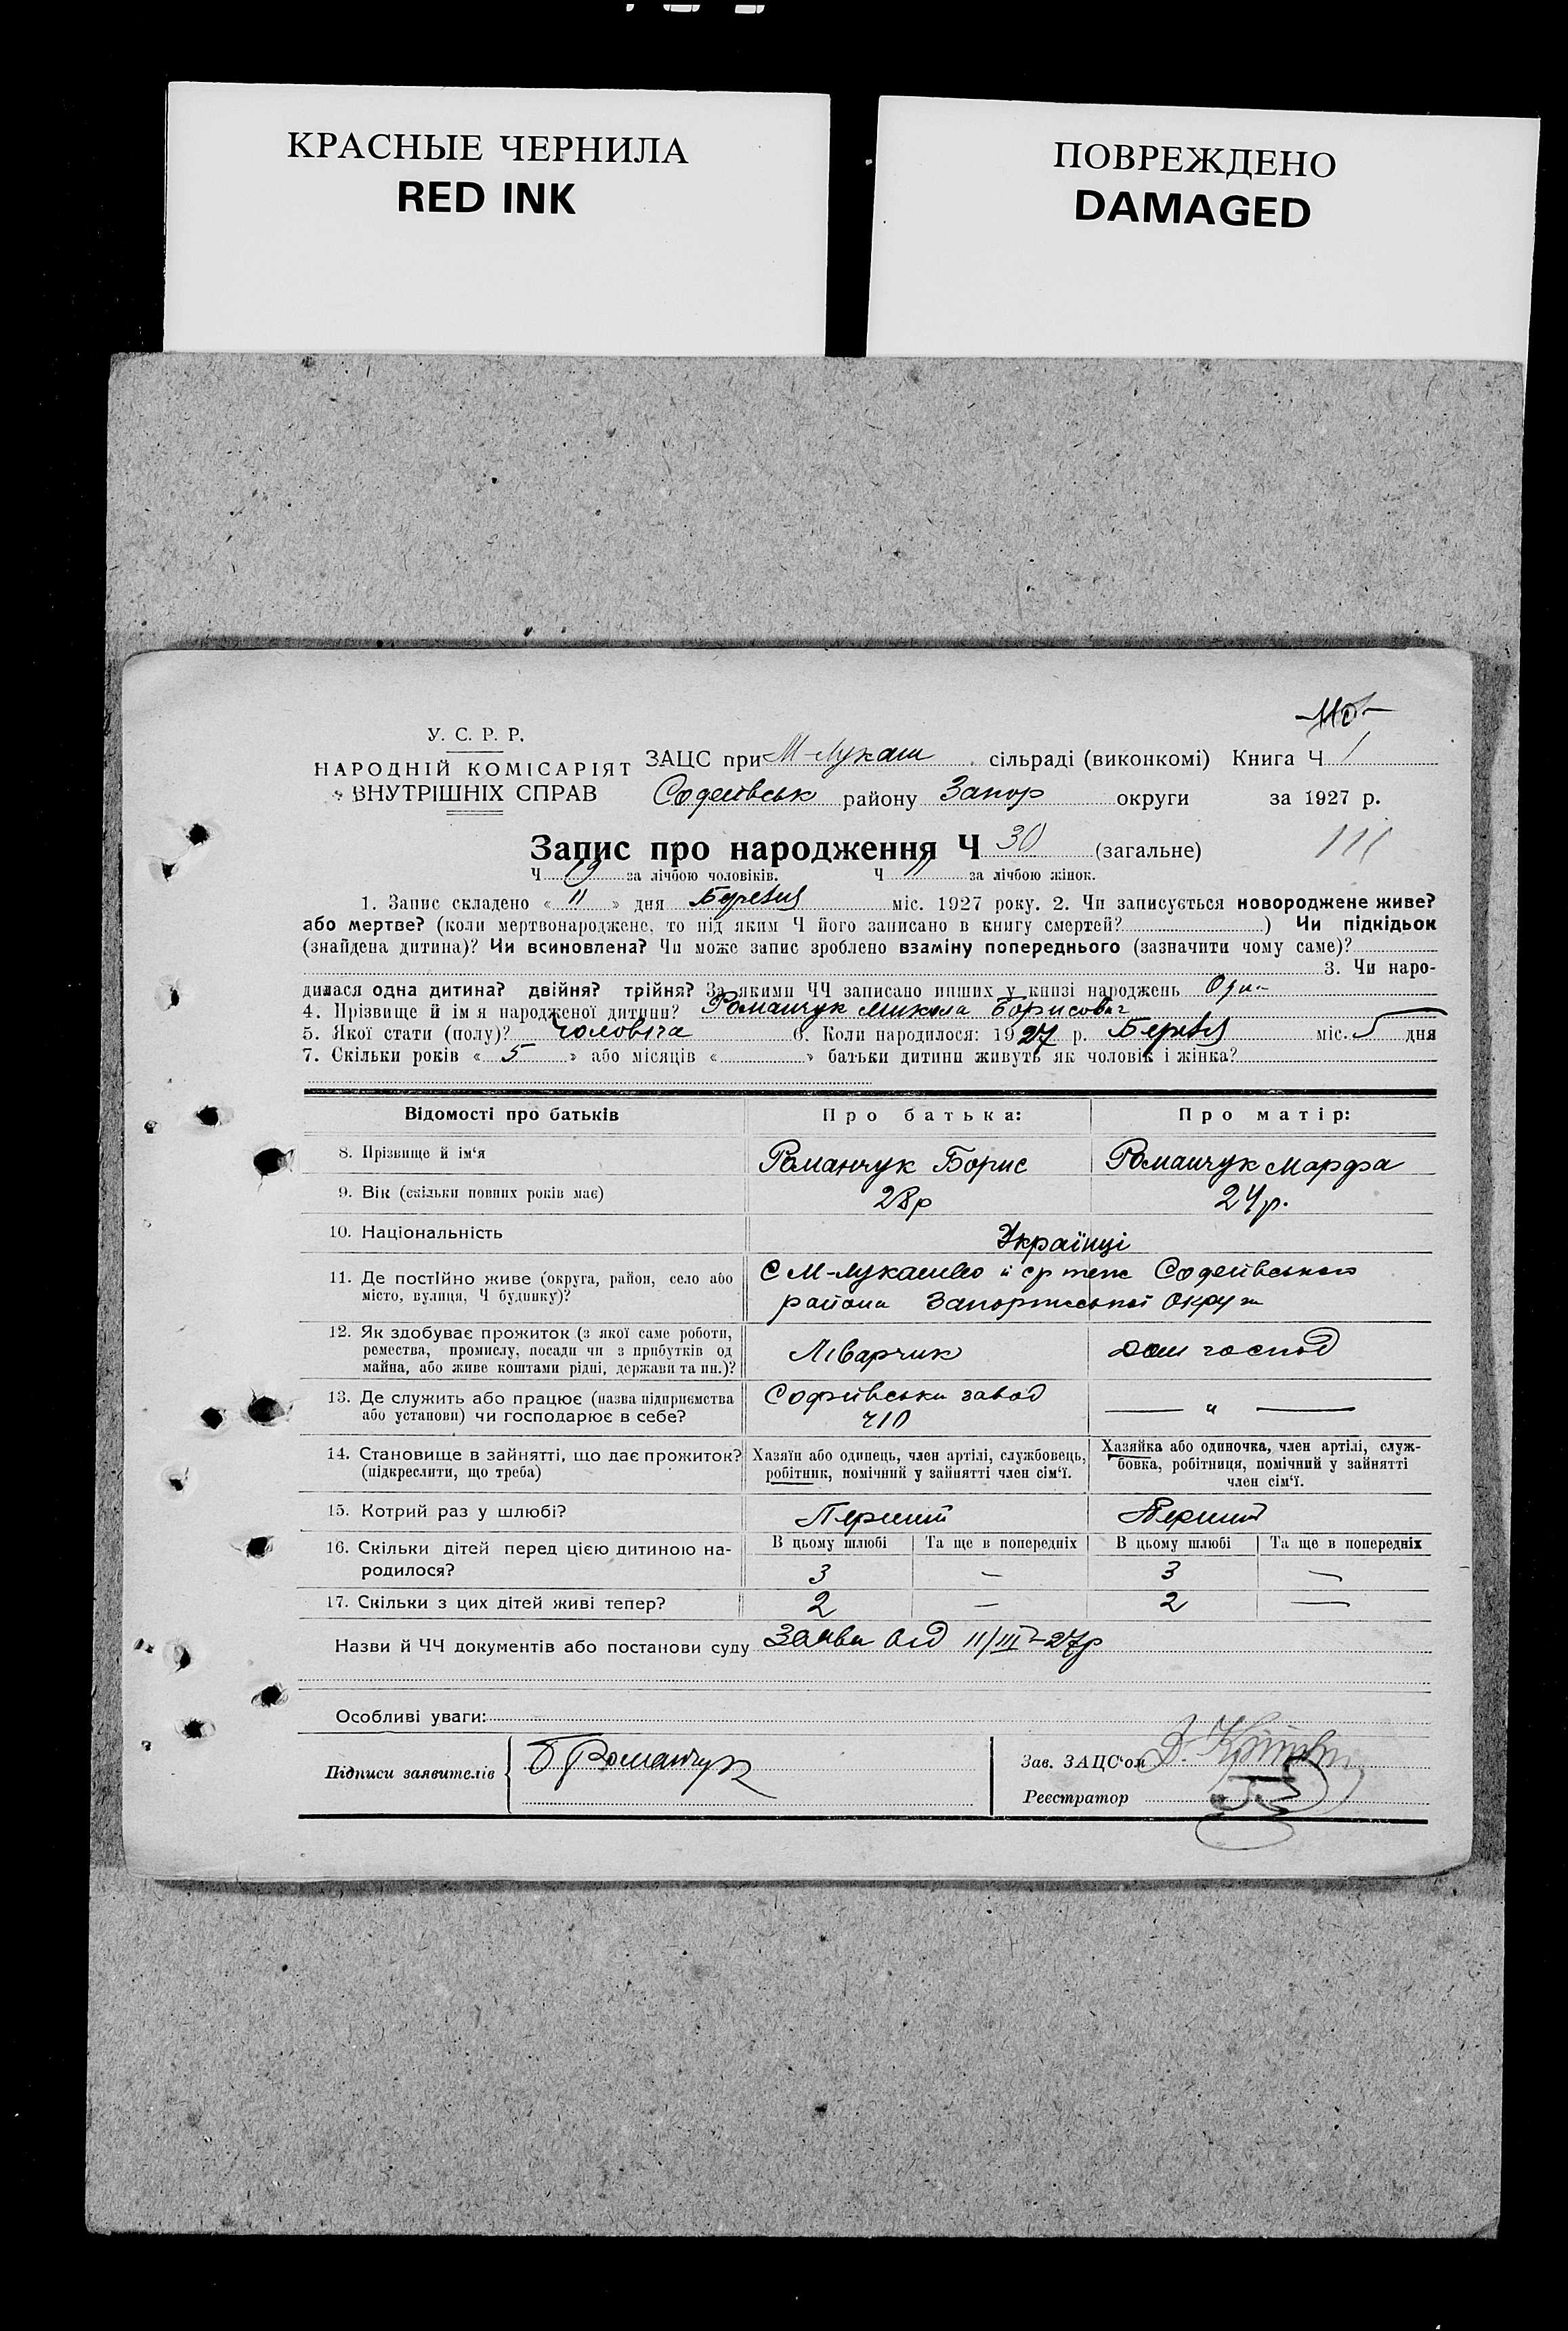 КРАСНЫЕ ЧЕРНИЛА
RED INK
ПОВРЕЖДЕНО
DAMAGED
У. С. Р. Р.
НАРОДНІЙ КОМІСАРІЯТ
ВНУТРІШНІХ СПРАВ
ЗАЦС при М-Лукаш сільраді (виконкомі) Книга Ч 1
Софеивськ району Запор округи за 1927 р.
Запис про народження Ч 30 (загальне) 111
Ч 19 за лічбою чоловіків. Ч 11 за лічбою жінок.
1. Запис складено « 11 » дня Березня міс. 1927 року. 2. Чи записується новороджене живе?
або мертве? (коли мертвонароджене, то під яким Ч його записано в книгу смертей? ) Чи підкідьок
(знайдена дитина)? Чи всиновлена? Чи може запис зроблено взаміну попереднього (зазначити чому саме)?
3. Чи наро-
дилася одна дитина? двійня? трійня? За якими ЧЧ записано инших у книзі народжень Один
4. Прізвище й ім я народженої дитини? Романчук Микола Борисович
5. Якої стати (полу)? Чоловіча 6. Коли народилося: 1927 р. Березня міс. 5 дня
7. Скільки років « 5 » або місяців « » батьки дитини живуть як чоловік і жінка?
Відомості про батьків Про батька: Про матір:
8. Прізвище й ім‘я Романчук Борис Романчук Марфа
9. Вік (скільки повних років має) 28р 24р.
10. Національність Українці
11. Де постійно живе (округа, район, село або С М-Лукашево Софеивського
місто, вулиця, Ч будинку)? района Запорижської Округи
12. Як здобуває прожиток (з якої саме роботи,
ремества, промислу, посади чи з прибутків од Ліварчик Дом господ
майна, або живе коштами рідні, держави та ин.)?
13. Де служить або працює (назва підприємства Софиївськи завод — " —
або установи) чи господарює в себе? Ч10
14. Становище в зайнятті, що дає прожиток? Хазяїн або одинець, член артілі, службовець, Хазяйка або одиночка, член артілі, служ-
(підкреслити, що треба) робітник, помічний у зайнятті член сім‘ї. бовка, робітниця, помічний у зайнятті
член сім‘ї.
15. Котрий раз у шлюбі? Перший Перший
16. Скільки дітей перед цією дитиною на- В цьому шлюбі Та ще в попередніх В цьому шлюбі Та ще в попередніх
родилося? 3 — 3 —
17. Скільки з цих дітей живі тепер? 2 — 2 —
Назви й ЧЧ документів або постанови суду Заява від 11/III-27р
Особливі уваги:
Підписи заявителів Б Романчук Зав. ЗАЦС‘ом
Реєстратор